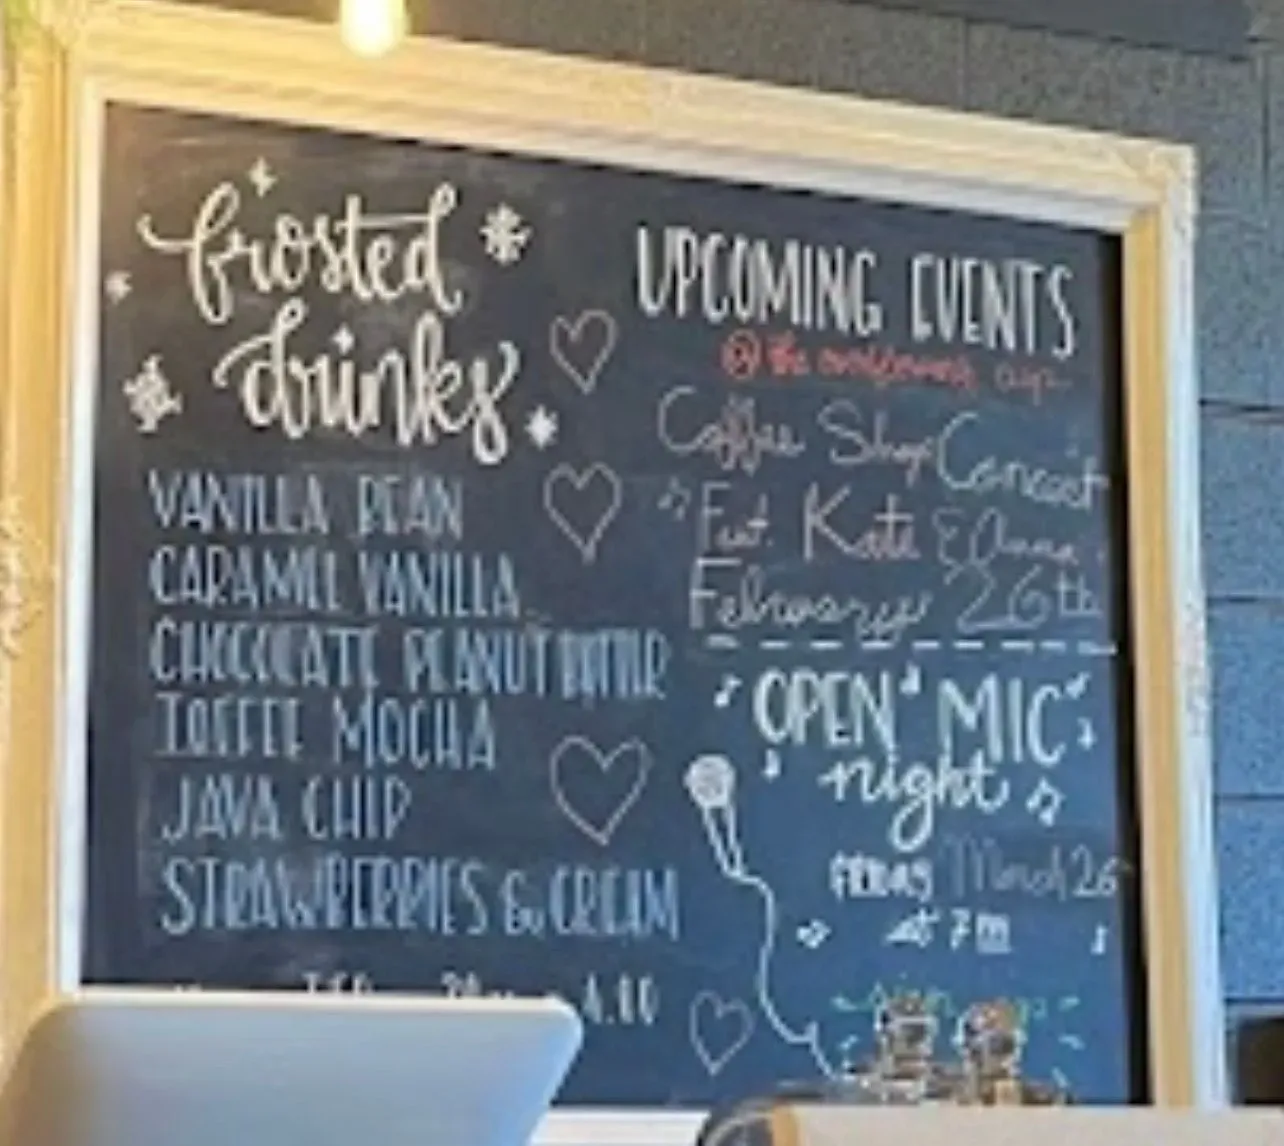 frosted
drinks
VANILLA BEAN
CARAMEL VANILLA
CHOCOLATE PEANUT BUTTER
TOFFEE MOCHA
JAVA CHIP
STRAWBERRIES & CREAM
UPCOMING EVENTS
@ the
Coffee Shop Concert
Feat. Kate & Anna
February 26th
OPEN MIC
night
FRIDAY March 26
at 7pm